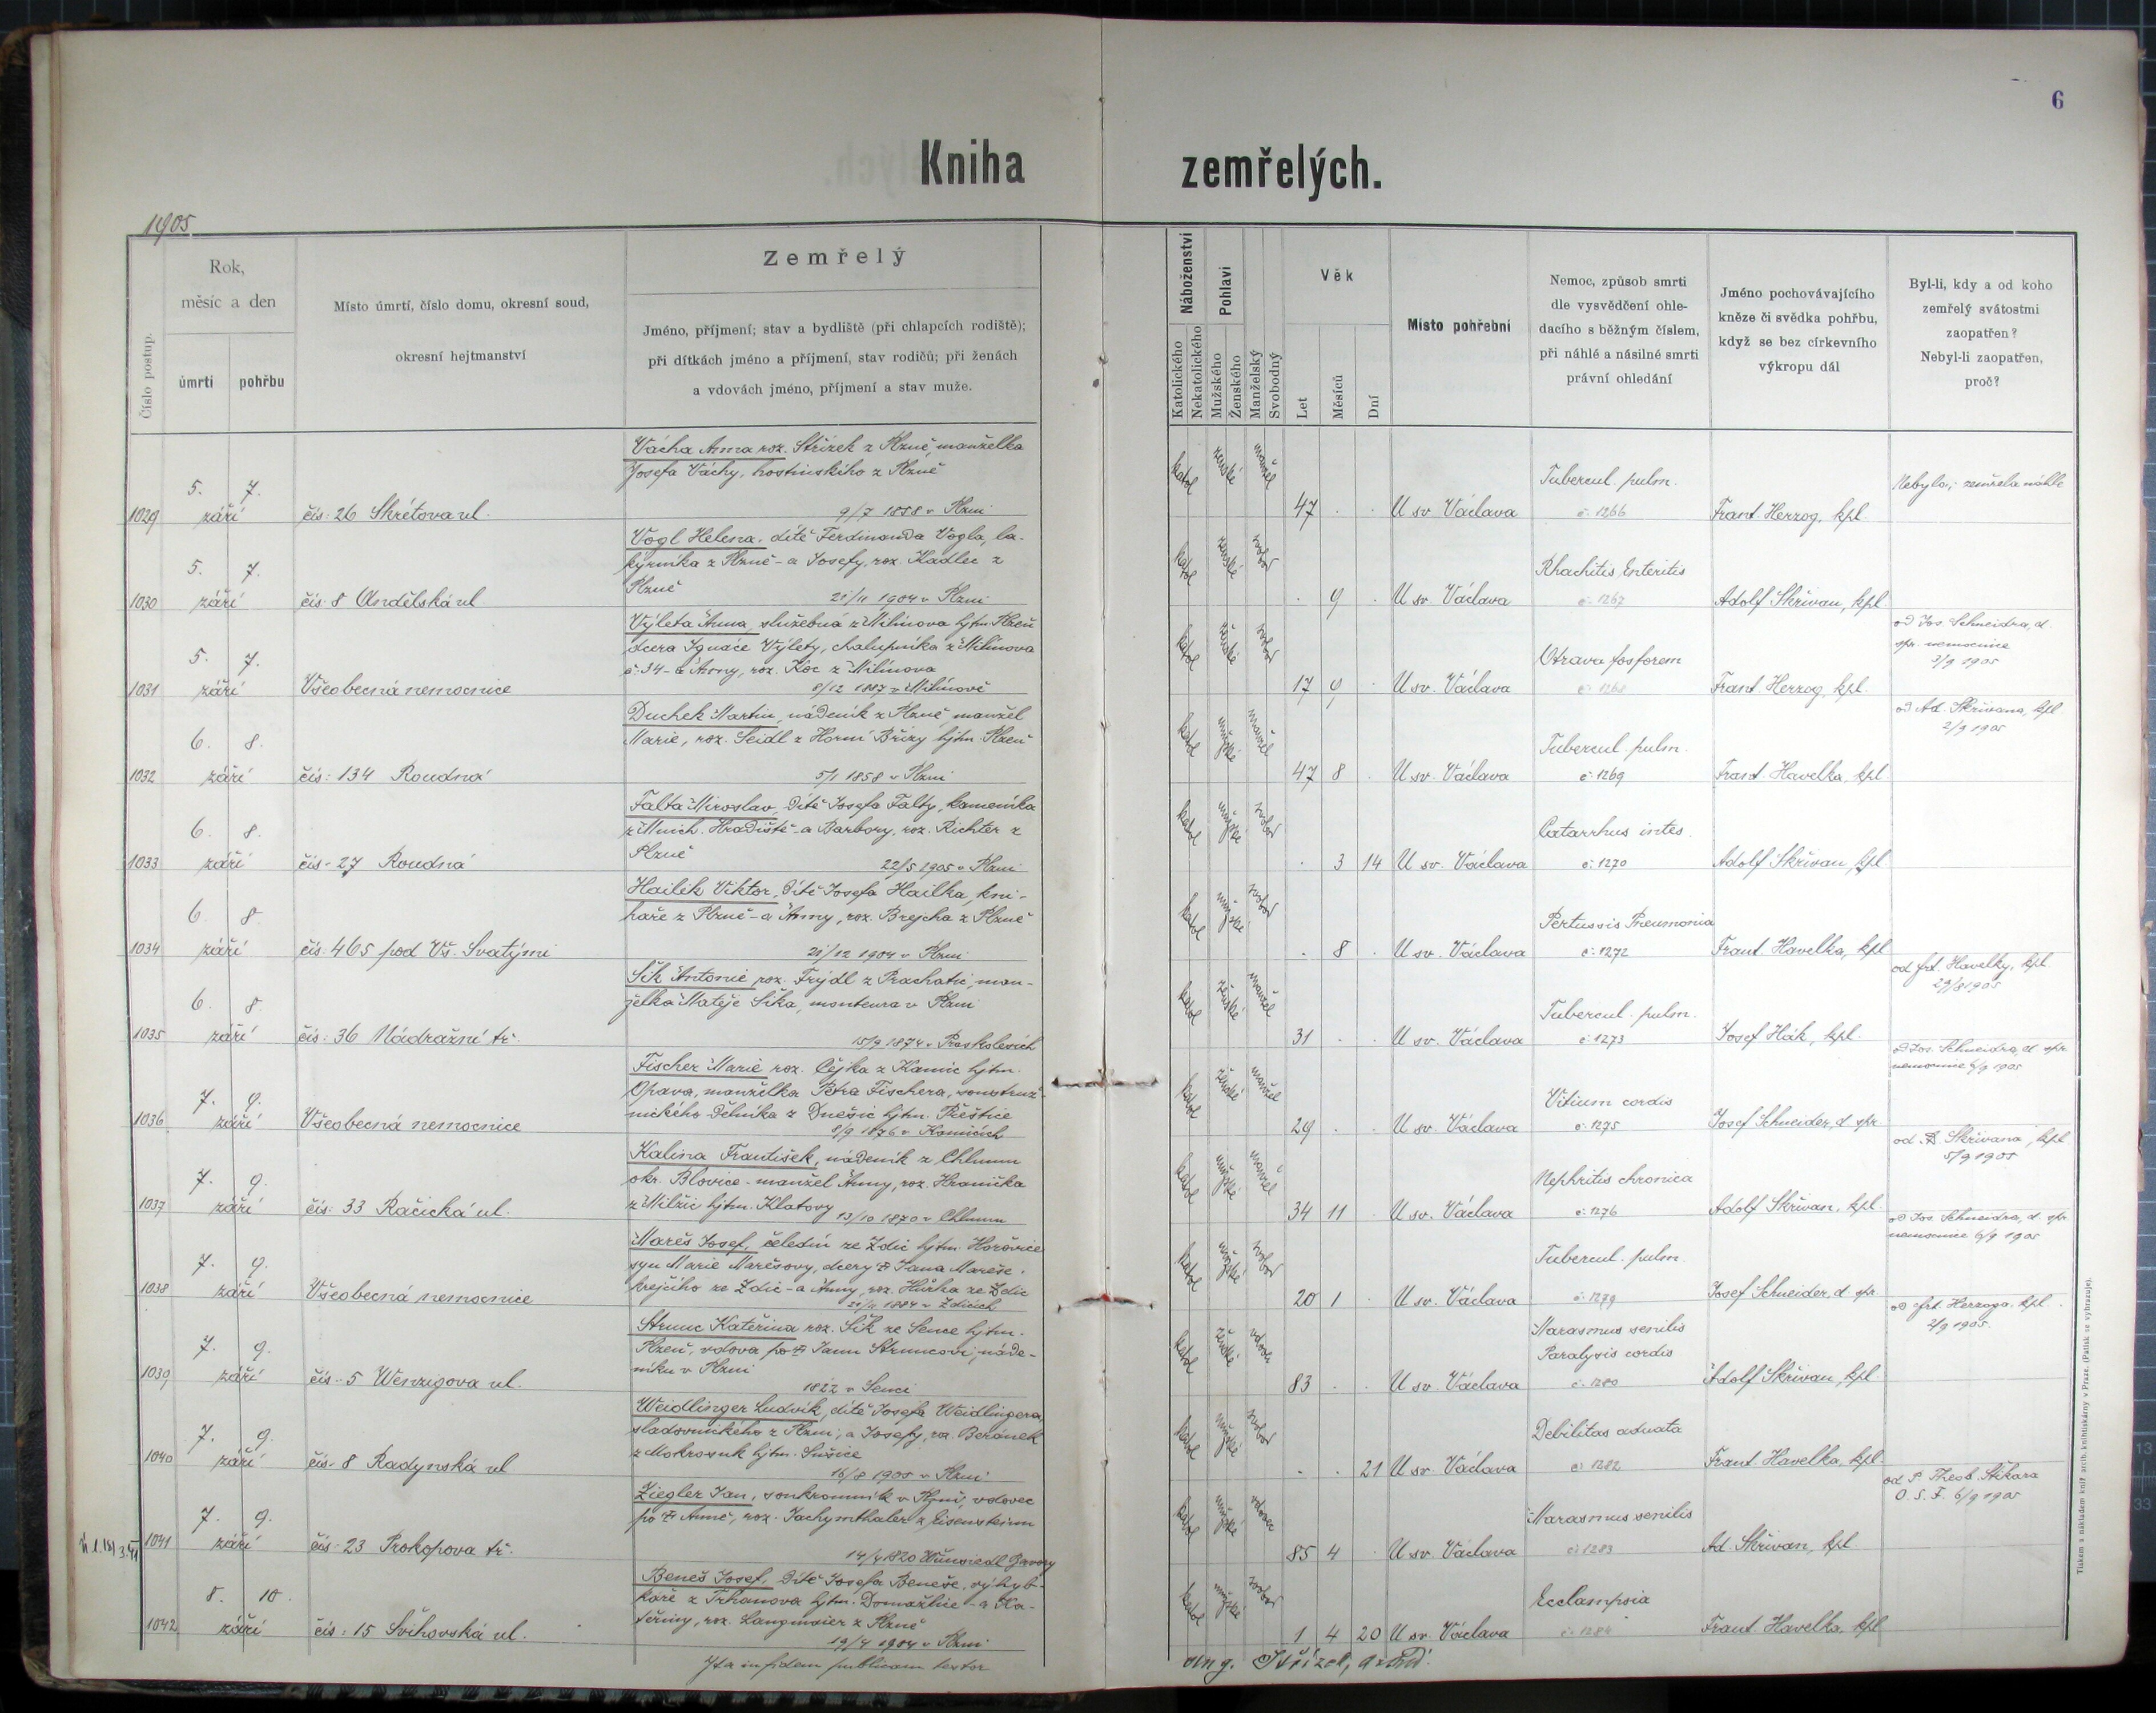 6
Kniha zemřelých.
1905
Číslo postup.
Rok,
měsíc a den
úmrtí
pohřbu
Místo úmrtí, číslo domu, okresní soud,
okresní hejtmanství
Zemřelý
Jméno, příjmení; stav a bydliště (při chlapcích rodiště);
při dítkách jméno a příjmení, stav rodičů; při ženách
a vdovách jméno, příjmení a stav muže.
Náboženství
Katolického
Nekatolického
Pohlaví
Mužského
Ženského
Manželský
Svobodný
Věk
Let
Měsíců
Dní
Místo pohřební
Nemoc, způsob smrti
dle vysvědčení ohle-
dacího s běžným číslem,
při náhlé a násilné smrti
právní ohledání
Jméno pochovávajícího
kněze či svědka pohřbu,
když se bez církevního
výkropu dál
Byl-li, kdy a od koho
zemřelý svátostmi
zaopatřen?
Nebyl-li zaopatřen,
proč?
1029 5. 7. září čís: 26 Skrétova ul.
Vácha Anna roz. Střízek z Plzně, manželka
Josefa Váchy, hostinského z Plzně
9/7 1858 v Plzni
katol ženské manžel 47 . . U sv. Václava
Tubercul. pulm.
č: 1266
Frant. Herzog, kpl.
Nebyla; zemřela náhle
1030 5. 7. září čís: 8 Andělská ul
Vogl Helena, dítě Ferdinanda Vogla, la-
kýrníka z Plzně - a Josefy, roz. Kadlec z
Plzně
21/11 1904 v Plzni
katol ženské svobod . 9 . U sv. Václava
Rhachitis, Enteritis
č: 1267
Adolf Skřivan, kpl.
1031 5. 7. září Všeobecná nemocnice
Výleta Anna, služebná z Milínova hjtm. Plzeň
dcera Ignáce Výlety, chalupníka z Milínova
č: 34 - a Anny, roz. Kôc z Milínova
8/12 1887 v Milínově
katol ženské svobod 17 9 . U sv. Václava
Otrava fosforem
č: 1268
Frant. Herzog, kpl.
od Jos. Schneidra, d.
spr. nemocnice
3/9 1905
1032 6. 8. září čís: 134 Roudná
Duchek Martin, nádeník z Plzně, manžel
Marie, roz. Seidl z Horní Břízy hjtm. Plzeň
5/1 1858 v Plzni
katol mužské manžel 47 8 . U sv. Václava
Tubercul. pulm.
č: 1269
Frant. Havelka, kpl
od Ad. Skřivana, kpl.
2/9 1905
1033 6. 8. září čís. 27 Roudná
Falta Miroslav, dítě Josefa Falty, kameníka
z Mnich. Hradiště - a Barbory, roz. Richter z
Plzně
22/5 1905 v Plzni
katol mužské svobod . 3 14 U sv. Václava
Catarrhus intes.
č: 1270
Adolf Skřivan, kpl
1034 6. 8. září čís: 465 pod Vš. Svatými
Hailík Viktor, dítě Josefa Hailka, kni-
haře z Plzně - a Anny, roz. Brejcha z Plzně
21/12 1904 v Plzni
katol mužské svobod . 8 . U sv. Václava
Pertussis Pneumonia
č: 1272
Frant. Havelka, kpl
1035 6. 8. září čís: 36 Nádražní tř.
Šik Antonie roz. Frýdl z Prachatic, man-
želka Matěje Šika, monteura v Plzni
15/9 1874 v Praskolesích
katol ženské manžel 31 . . U sv. Václava
Tubercul. pulm.
č: 1273
Josef Hák, kpl.
od Frt. Havelky, kpl.
29/8 1905
1036 7. 9. září Všeobecná nemocnice
Fischer Marie roz. Čejka z Kamic hjtm.
Opava, manželka Petra Fischera, soustruž-
nického dělníka z Dnešic hjtm. Přeštice
8/9 1876 v Kamicích
katol ženské manžel 29 . . U sv. Václava
Vitium cordis
č: 1275
Josef Schneider, d. spr.
od Jos. Schneidra, d. spr.
nemocnice 6/9 1905
1037 7. 9. září čís: 33 Račická ul.
Kalina František, nádeník z Chlumu
okr. Blovice - manžel Anny, roz. Hranička
z Milžic hjtm. Klatovy
13/10 1870 v Chlumu
katol mužské manžel 34 11 U sv. Václava
Nephritis chronica
č: 1276
Adolf Skřivan, kpl.
od A. Skřivana, kpl
5/9 1905
1038 7. 9. září Všeobecná nemocnice
Mareš Josef, čeledín ze Zdic hjtm. Hořovice
syn Marie Marešovy, dcery † Jana Mareše,
krejčího ze Zdic - a Anny, roz. Hůrka ze Zdic
1884 v Zdicích
katol mužské svobod 20 1 . U sv. Václava
Tubercul. pulm.
č: 1279
Josef Schneider, d. spr.
od Jos. Schneidra, d. spr.
nemocnice 6/9 1905
1039 7. 9. září čís: 5 Wenzigova ul.
Strunc Kateřina roz. Šik ze Sence hjtm.
Plzeň, vdova po † Janu Struncovi, náde-
níku v Plzni
1822 v Senci
katol ženské vdova 83 . . U sv. Václava
Marasmus senilis
Paralysis cordis
č: 1280
Adolf Skřivan, kpl.
od Frt. Herzoga, kpl.
2/9 1905.
1040 7. 9. září čís. 8 Radynská ul
Weidlinger Ludvík, dítě Josefa Weidlingera,
sladovnického z Plzni, a Josefy, roz. Beránek
z Mokrosuk hjtm. Sušice
16/8 1905 v Plzni
katol mužské svobod . . 21 U sv. Václava
Debilitas adnata
č: 1282
Frant. Havelka, kpl.
1041 7. 9. září čís: 23 Prokopova tř.
Ziegler Jan, soukromník v Plzni, vdovec
po † Anně, roz. Jachymthaler z Eisensteinu
14/4 1820 Wunsiedl Bavory
katol mužské vdovec 85 4 . U sv. Václava
Marasmus senilis
č: 1283
Ad. Skřivan, kpl
od P. Theob. Stikara
O. S. F. 6/9 1905
1042 8. 10. září čís: 15 Švihovská ul.
Beneš Josef, dítě Josefa Beneše, výhyb-
káře z Trhanova hjtm. Domažlice - a Ka-
teřiny, roz. Langmaier z Plzně
19/4 1904 v Plzni
katol mužské svobod 1 4 20 U sv. Václava
Ecclampsia
č: 1284
Frant. Havelka, kpl
Ita in fidem publicam testor
Tiskem a nákladem kníž. arcib. knihtiskárny v Praze. (Patisk se vyhrazuje).